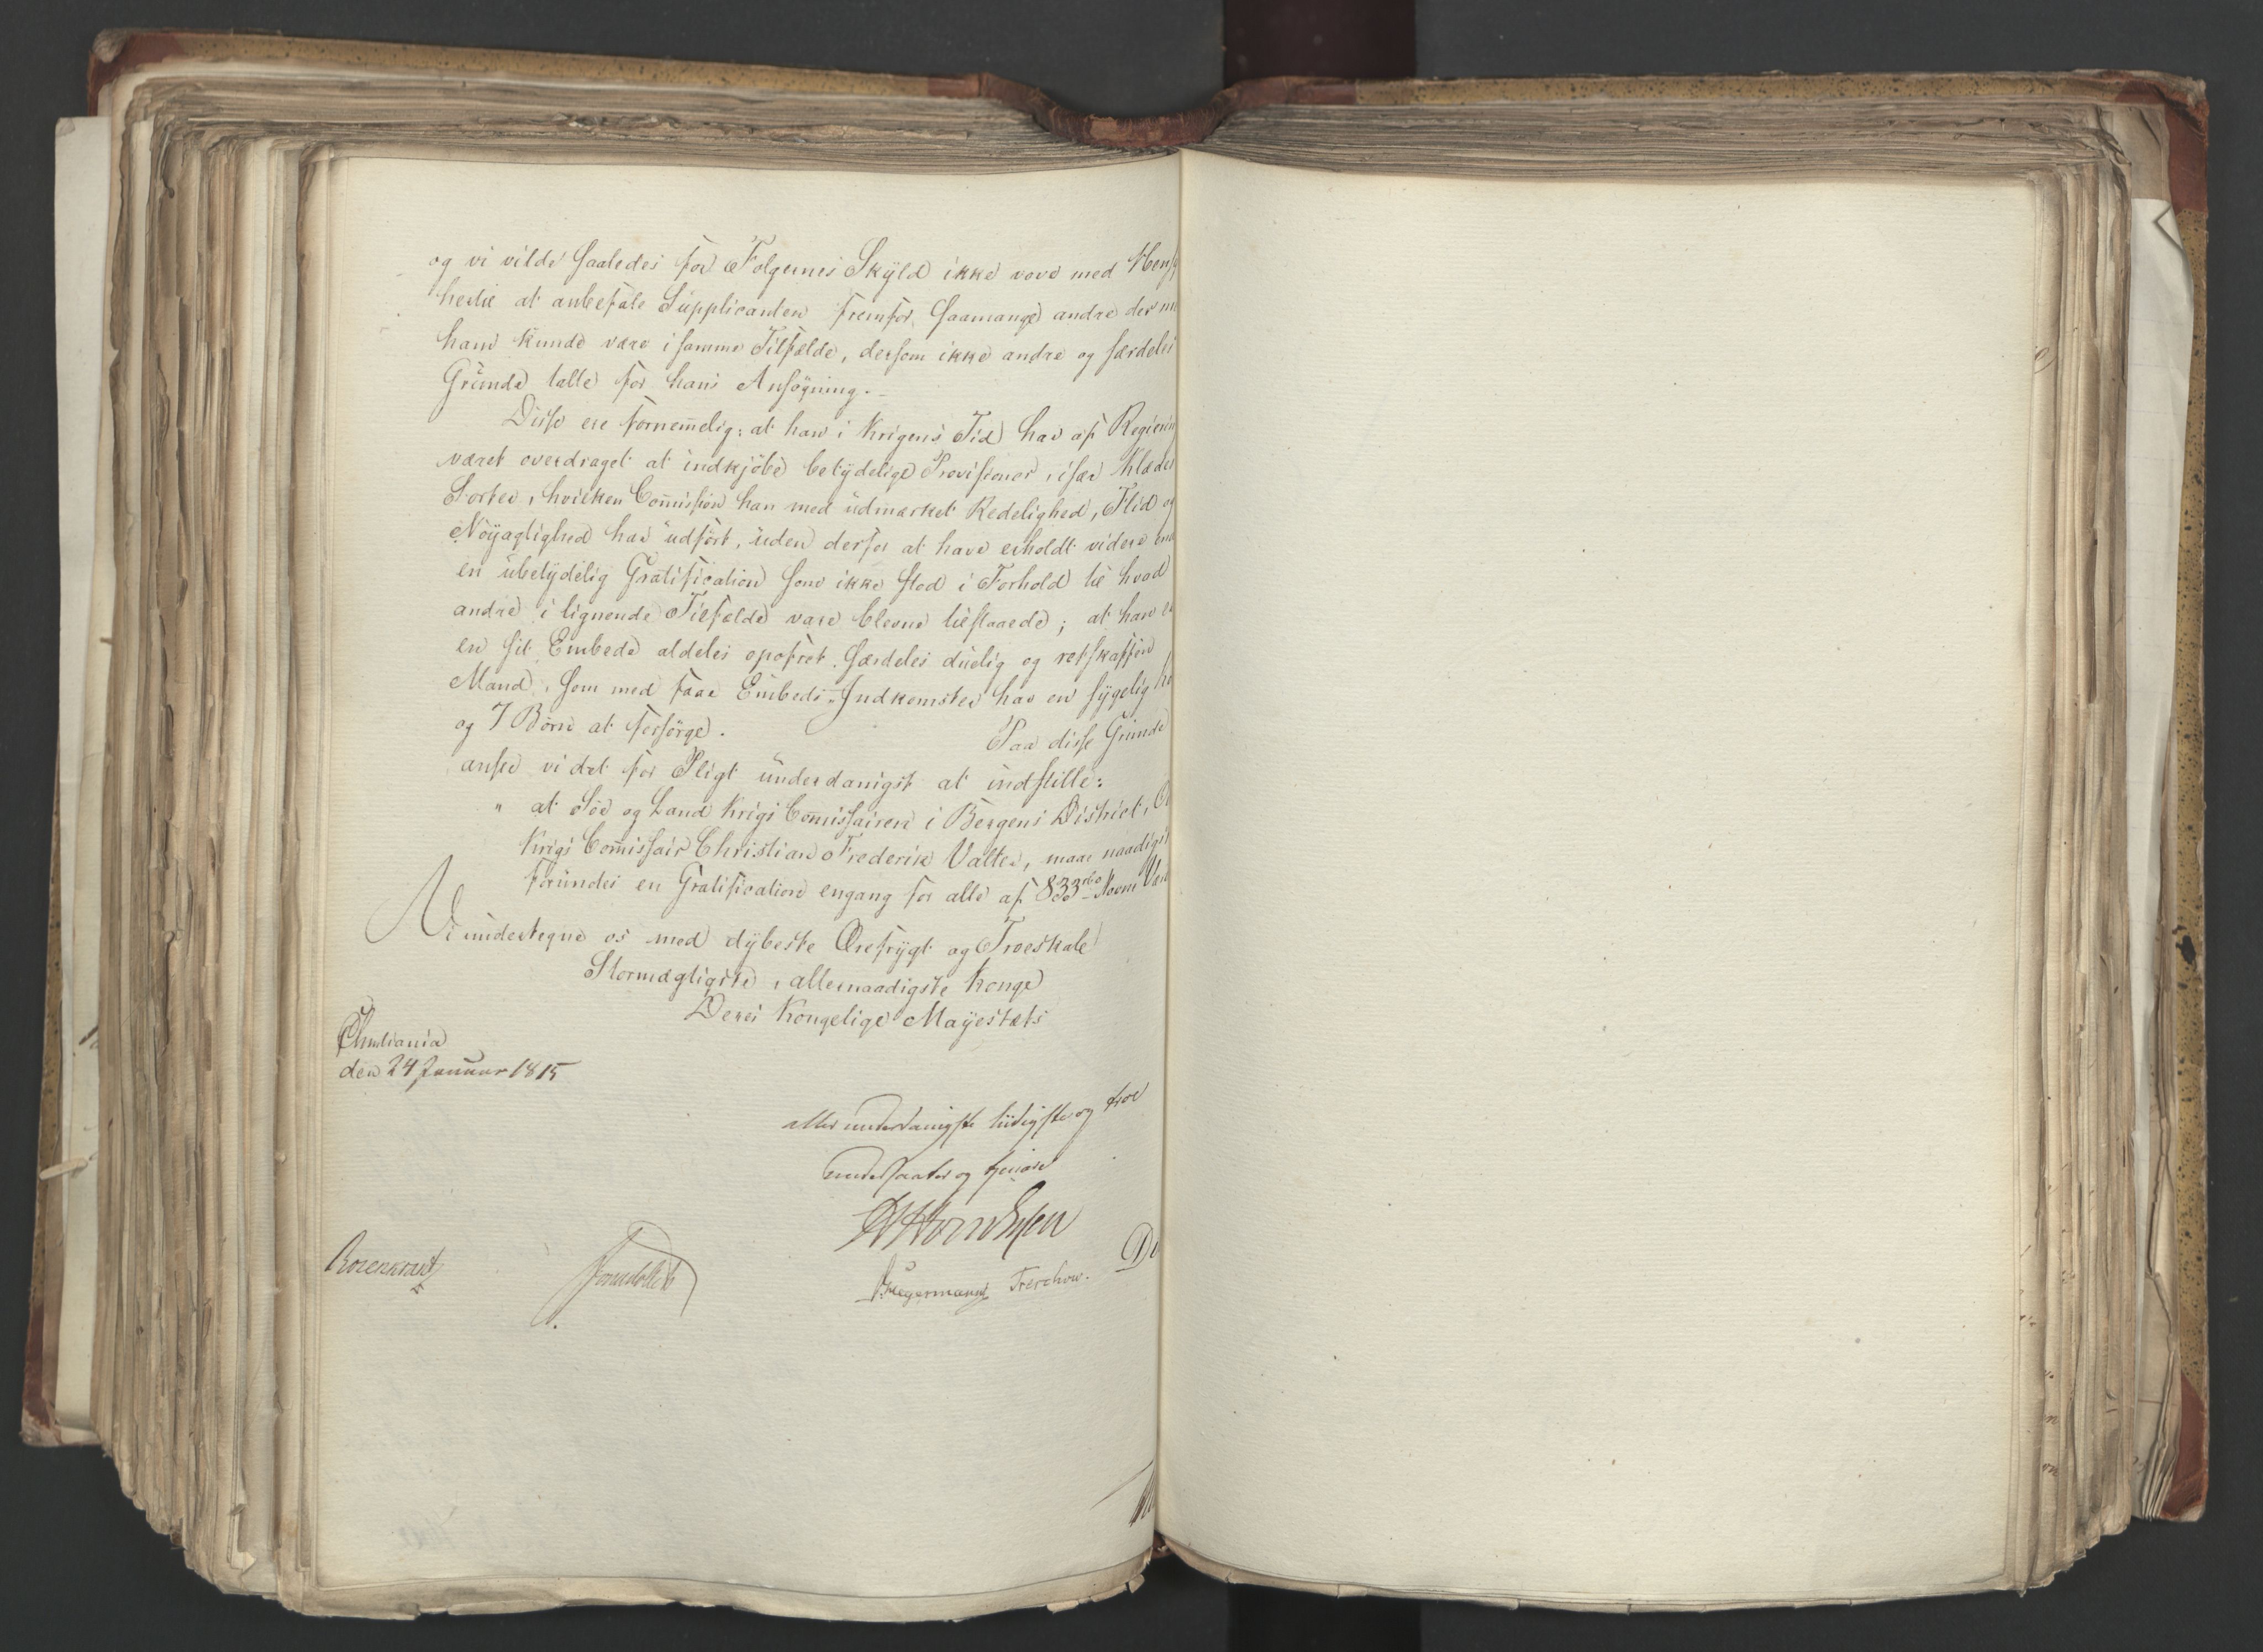 og vi vilde saaledes for Følgernes Skyld ikke vove med Hensy
hertil at anbefale Supplicanten fremfor saamange andre der
han kunde være i samme Tilfælde, dersom ikke andre og særdeles
Grunde talte for hans Ansøgning.
Disse ere fornem̄elig: at han i Krigens Tid har af Regierin
været overdraget at indkjöbe betydelige Provisioner, især Klæder
Sorter, hvilken Com̄ission han med udmærket Redelighed, Flid og
Nöyagtighed har udfört, uden derfor at have erholdt videre end
en ubetydelig Gratification som ikke stod i Forhold til hvad
andre i lignende Tilfælde vare blevne tilstaaede; at han er
en sit Embede aldeles opofret særdeles duelig og retskaffen
Mand, som med faae Embeds-Indkomster har en sygelig
og 7 Börn at forsörge. Paa disse Grunde
ansee vi det for Pligt underdanigst at indstille:
" at Söe og Land Krigs Com̄issairen i Bergens District,
Krigs Com̄issair Christian Frederik Valter, maae naadigst
forundes en Gratification engang for alle af 833 rbd Navne Vær
Vi undertegne os med dybeste Ærefrygt og Troeskab
Stormægtigste, allernaadigste Konge
Deres Kongelige Mayestæts
Christiania
den 24 Januar 1815
aller underdanigste lydigste og troe
undersaater og tienere
Rosenkrantz
Sommerhielm
Hegermann Treschow.